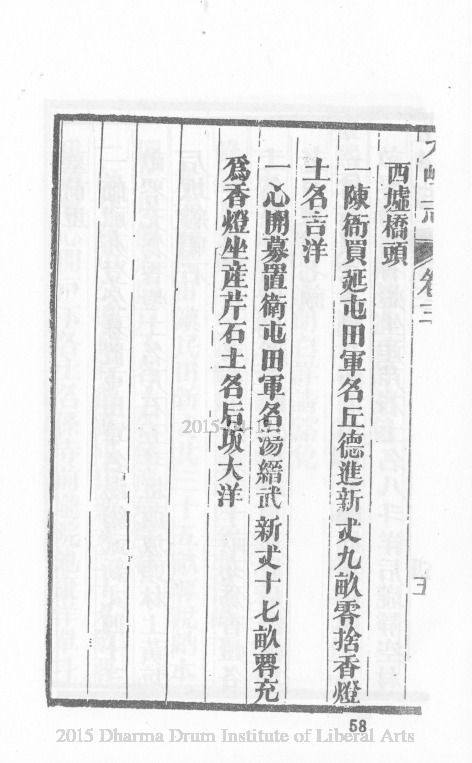 卷三
西墟橋頭
一陳衙買延屯田軍名丘德進新丈九畝零捨香燈
土名吉洋
一心開募置衛屯田軍名湯縉武新丈十七畝零充
爲香燈坐産芹石土名后坂大洋
58
2015 Dharma Drum Institute of Liberal Arts